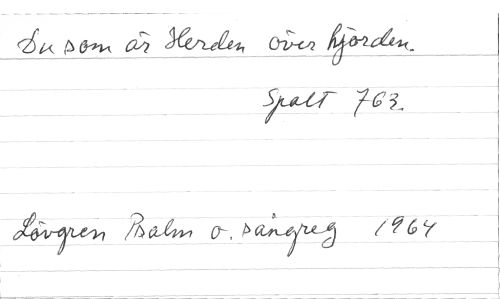 Du som är Herden över hjorden.
Spalt 763.
Lövgren Psalm o. sångreg 1964